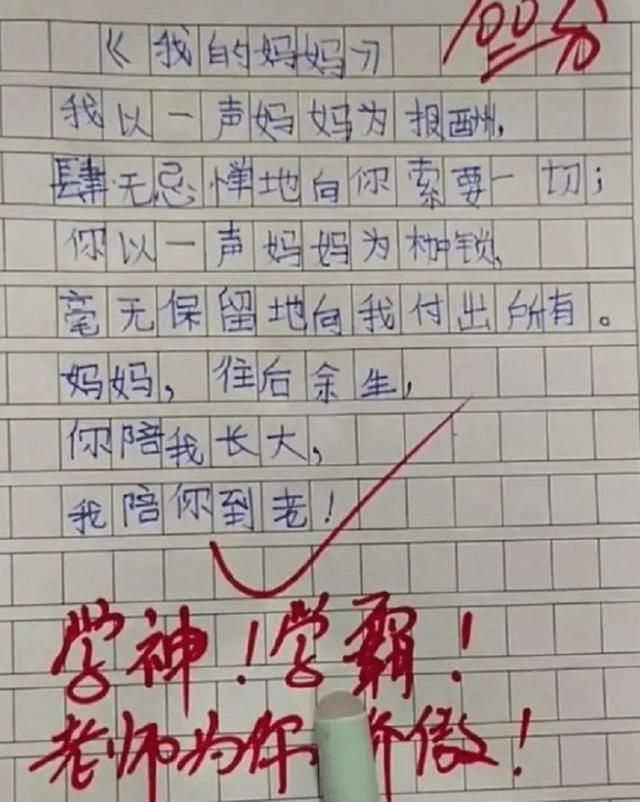 100分
《我的妈妈》
我以一声妈妈为报酬，
肆无忌惮地向你索要一切；
你以一声妈妈为枷锁，
毫无保留地向我付出所有。
妈妈，往后余生，
你陪我长大，
我陪你到老！
学神！学霸！
老师为你 傲！